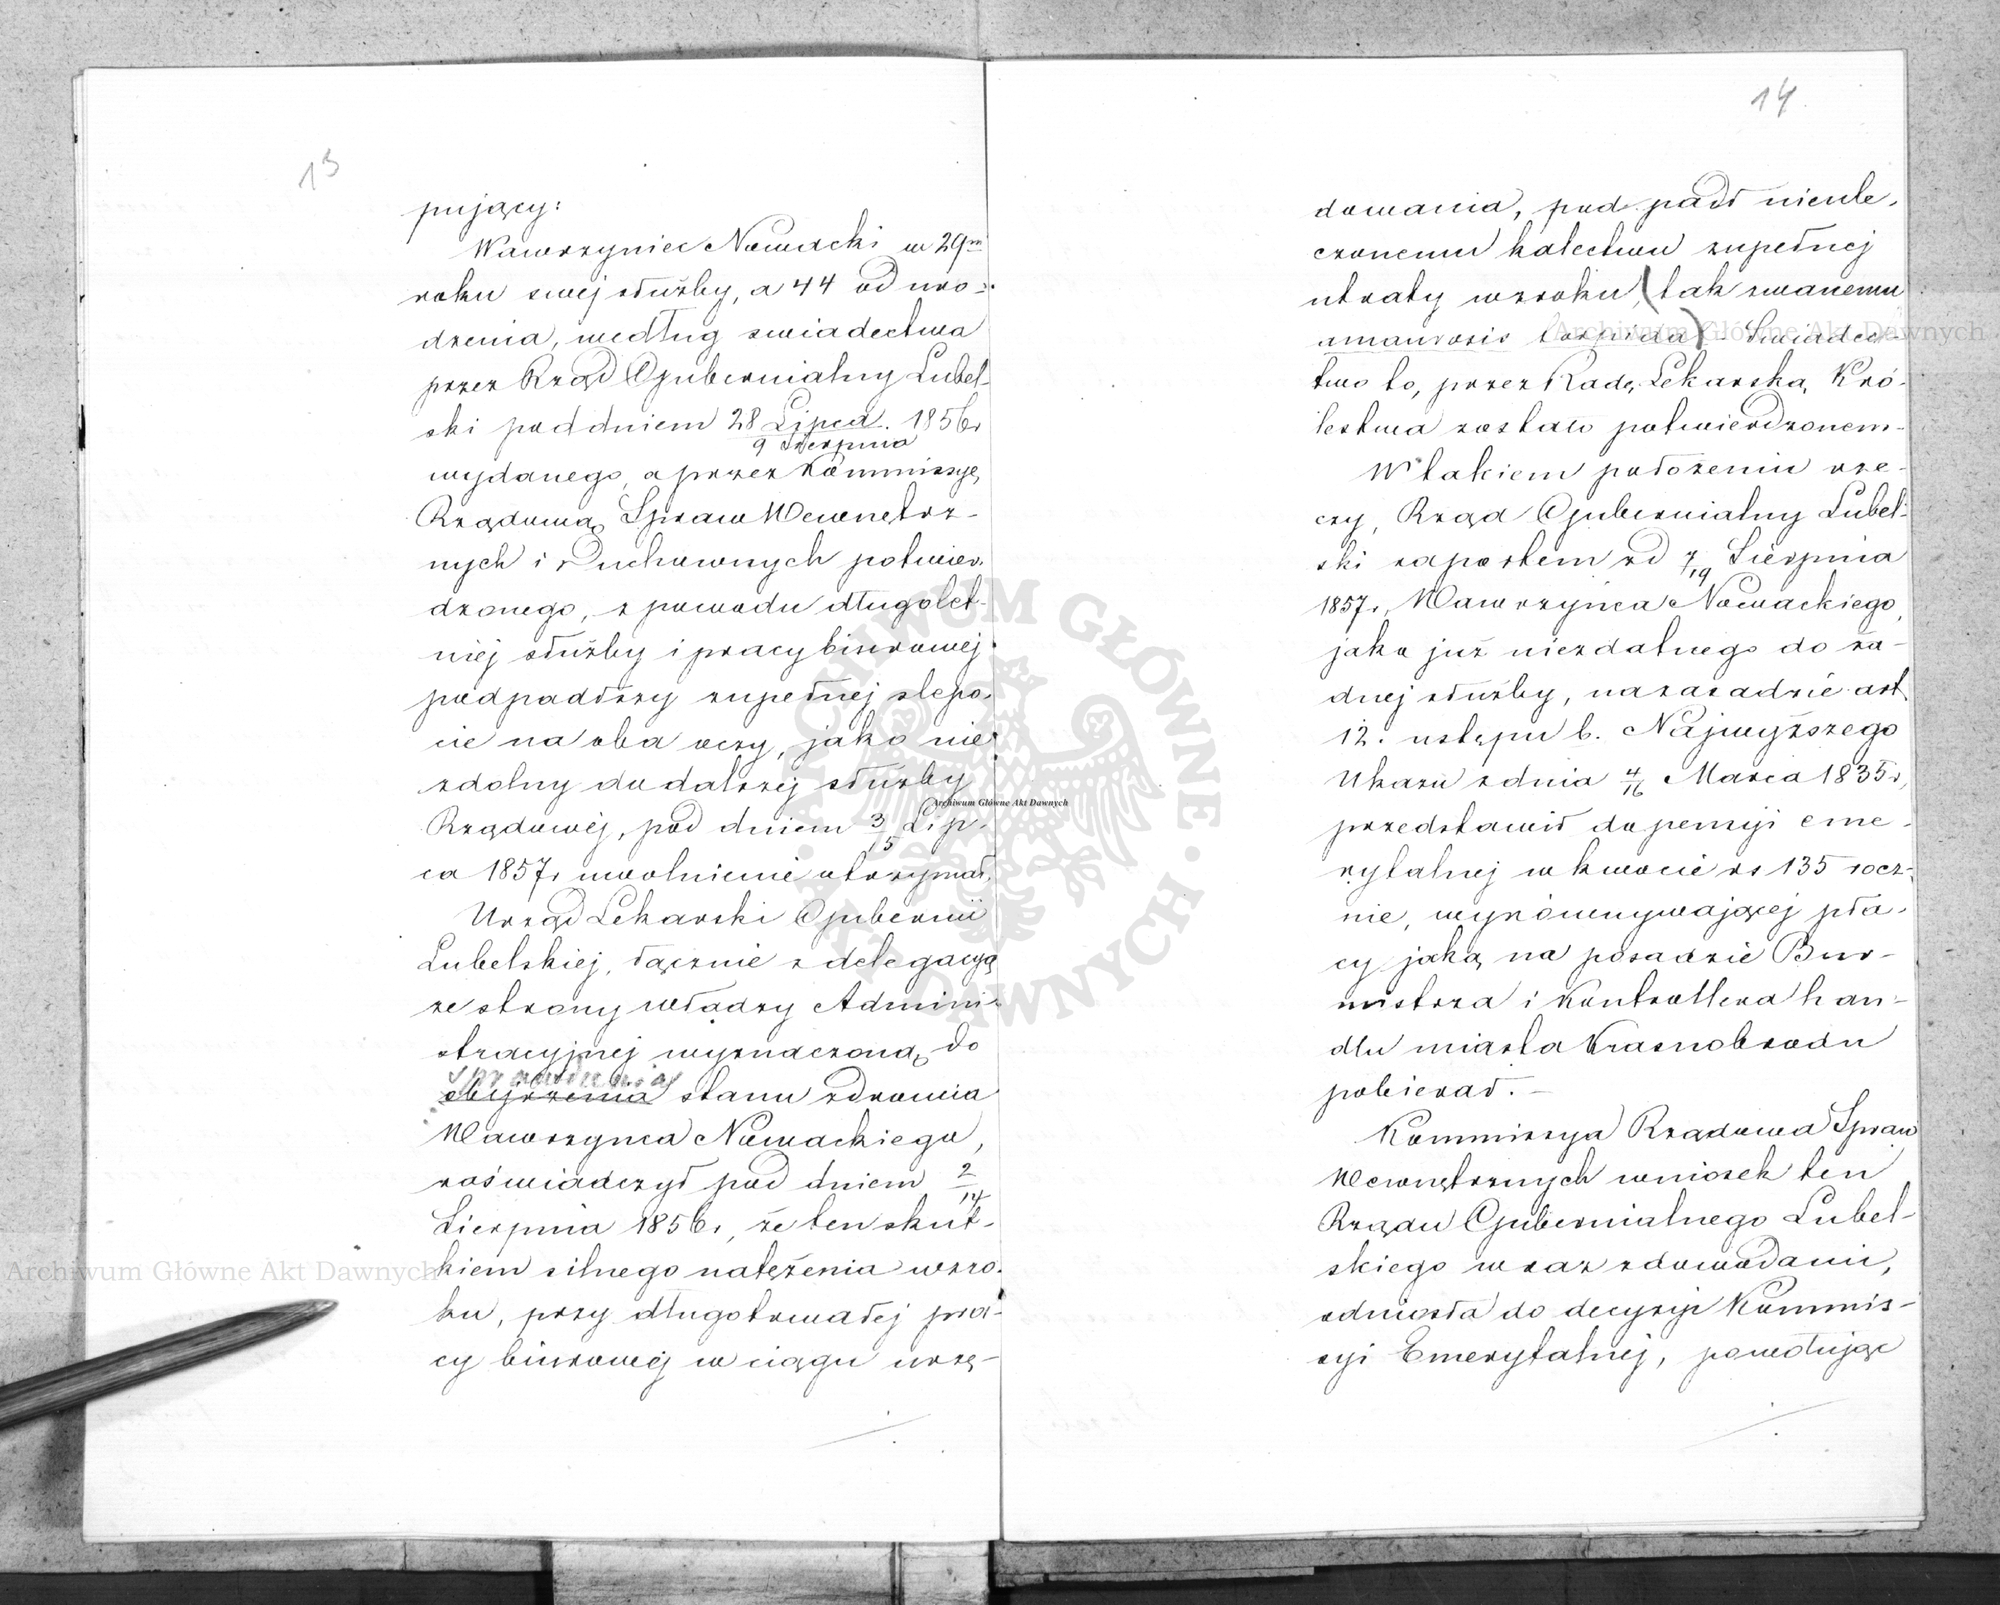 13
pujący:
Wawrzyniec Nowacki w 29m
roku swej służby, a 44 od uro-
dzenia, według swiadectwa
przez Rząd Gubernialny Lubel-
ski pod dniem 28 Lipca 1856r
9 Sierpnia
wydanego, a przez Kommissyę
Rządową Spraw Wewnętrz-
nych i Duchownych potwier-
dzonego, z powodu długolet-
niej służby i pracy biurowej
podpadłszy zupełnej slepo-
cie na oba oczy, jako nie
zdolny do dalszej służby
Rządowéj, pod dniem 3/15 Lip-
ca 1857r uwolnienie otrzymał.
Urząd Lekarski Gubernii
Lubelskiej, łącznie z delegacyą
ze strony władzy Admini-
stracyjnej wyznaczoną do
sprawdzenia
obejrzenia stanu zdrowia
Wawrzyńca Nowackiego,
zaświadczył pod dniem 2/14
Sierpnia 1856r, że ten skut-
kiem silnego natężenia wzro-
ku, przy długotrwałej pra-
cy biurowéj w ciągu urzę-
14
dowania, pod padł nieule-
czonemu kalectwu zupełnej
utraty wzroku, (tak zwanemu
amaurosis torpida) - Swiadec-
two to, przez Radę Lekarską Kró-
lestwa zostało potwierdzonem -
W takiem położeniu rze-
czy, Rząd Gubernialny Lubel-
ski raportem od 7/19 Sierpnia
1857r, Wawrzyńca Nowackiego,
jako już niezdatnego do ża-
dnej służby, na zasadzie art
12. ustępu b. Najwyższego
Ukazu z dnia 4/16 Marca 1835r,
przedstawił do pensyi eme-
rytalnej w kwocie rs 135 rocz-
nie, wyrównywającej pła-
cy jaką na posadzie Bur-
mistrza i Kontrollera han-
dlu miasta Krasnobrodu
pobierał. -
Kommissya Rządowa Spraw
Wewnętrznych wniosek ten
Rządu Gubernialnego Lubel-
skiego wraz z dowodami,
odniosła do decyzyi Kommis-
syi Emerytalnéj, powołując
Archiwum Główne Akt Dawnych
Archiwum Główne Akt Dawnych
Archiwum Główne Akt Dawnych
ARCHIWUM GŁÓWNE AKT DAWNYCH